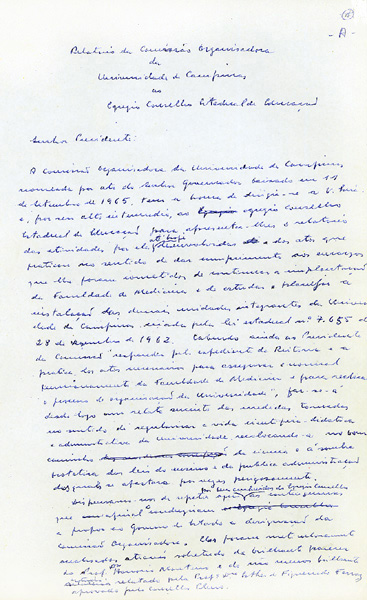 - A -
Relatório da Comissão Organisadora
da
Universidade de Campinas
ao
Egregio Conselho Estadual de Educação
Senhor Presidente:
A Comissão Organisadora da Universidade de Campinas,
nomeada por ato do Senhor Governador baixado em
de setembro de 1965, tem a honra de dirigir-se a V.
e, por seu alto intermedio, ao egregio Conselho
Estadual de Educação para apresentar-lhes o relatório
das atividades por ela desenvolvidas e dos atos que
praticou no sentido de dar cumprimento aos encargos
que lhe foram cometidos de continuar a implantação
da Faculdade de Medicina e de estudar e planejar a
instalação das demais unidades integrantes da Univer
dade de Campinas, criada pela lei estadual nº 7.655 de
28 de dezembro de 1962. Cabendo ainda ao Presidente
da Comissão responder pelo expediente da Reitoria e a
pratica dos atos necessarios para assegurar o normal
funcionamento da Faculdade de Medicina e para receber
o pessoal de organização da Universidade, far-se-á
desde logo um relato sucinto das medidas tomadas
no sentido de regularisar a vida didatica
e administrativa da Universidade, recolocando-a no bom
caminho da ciencia e á sombra
das leis do ensino e da publica administração
Dispensamo-nos de repetir
que
a propôr ao Governo do Estado a designação da
Comissão Organisadora. Elas foram
atravéz do brilhante parecer
do Prof. e do não menos brilhante
relatado pela Profa. Dra. Esther de Figueiredo Ferraz
aprovado pelo Conselho Pleno.